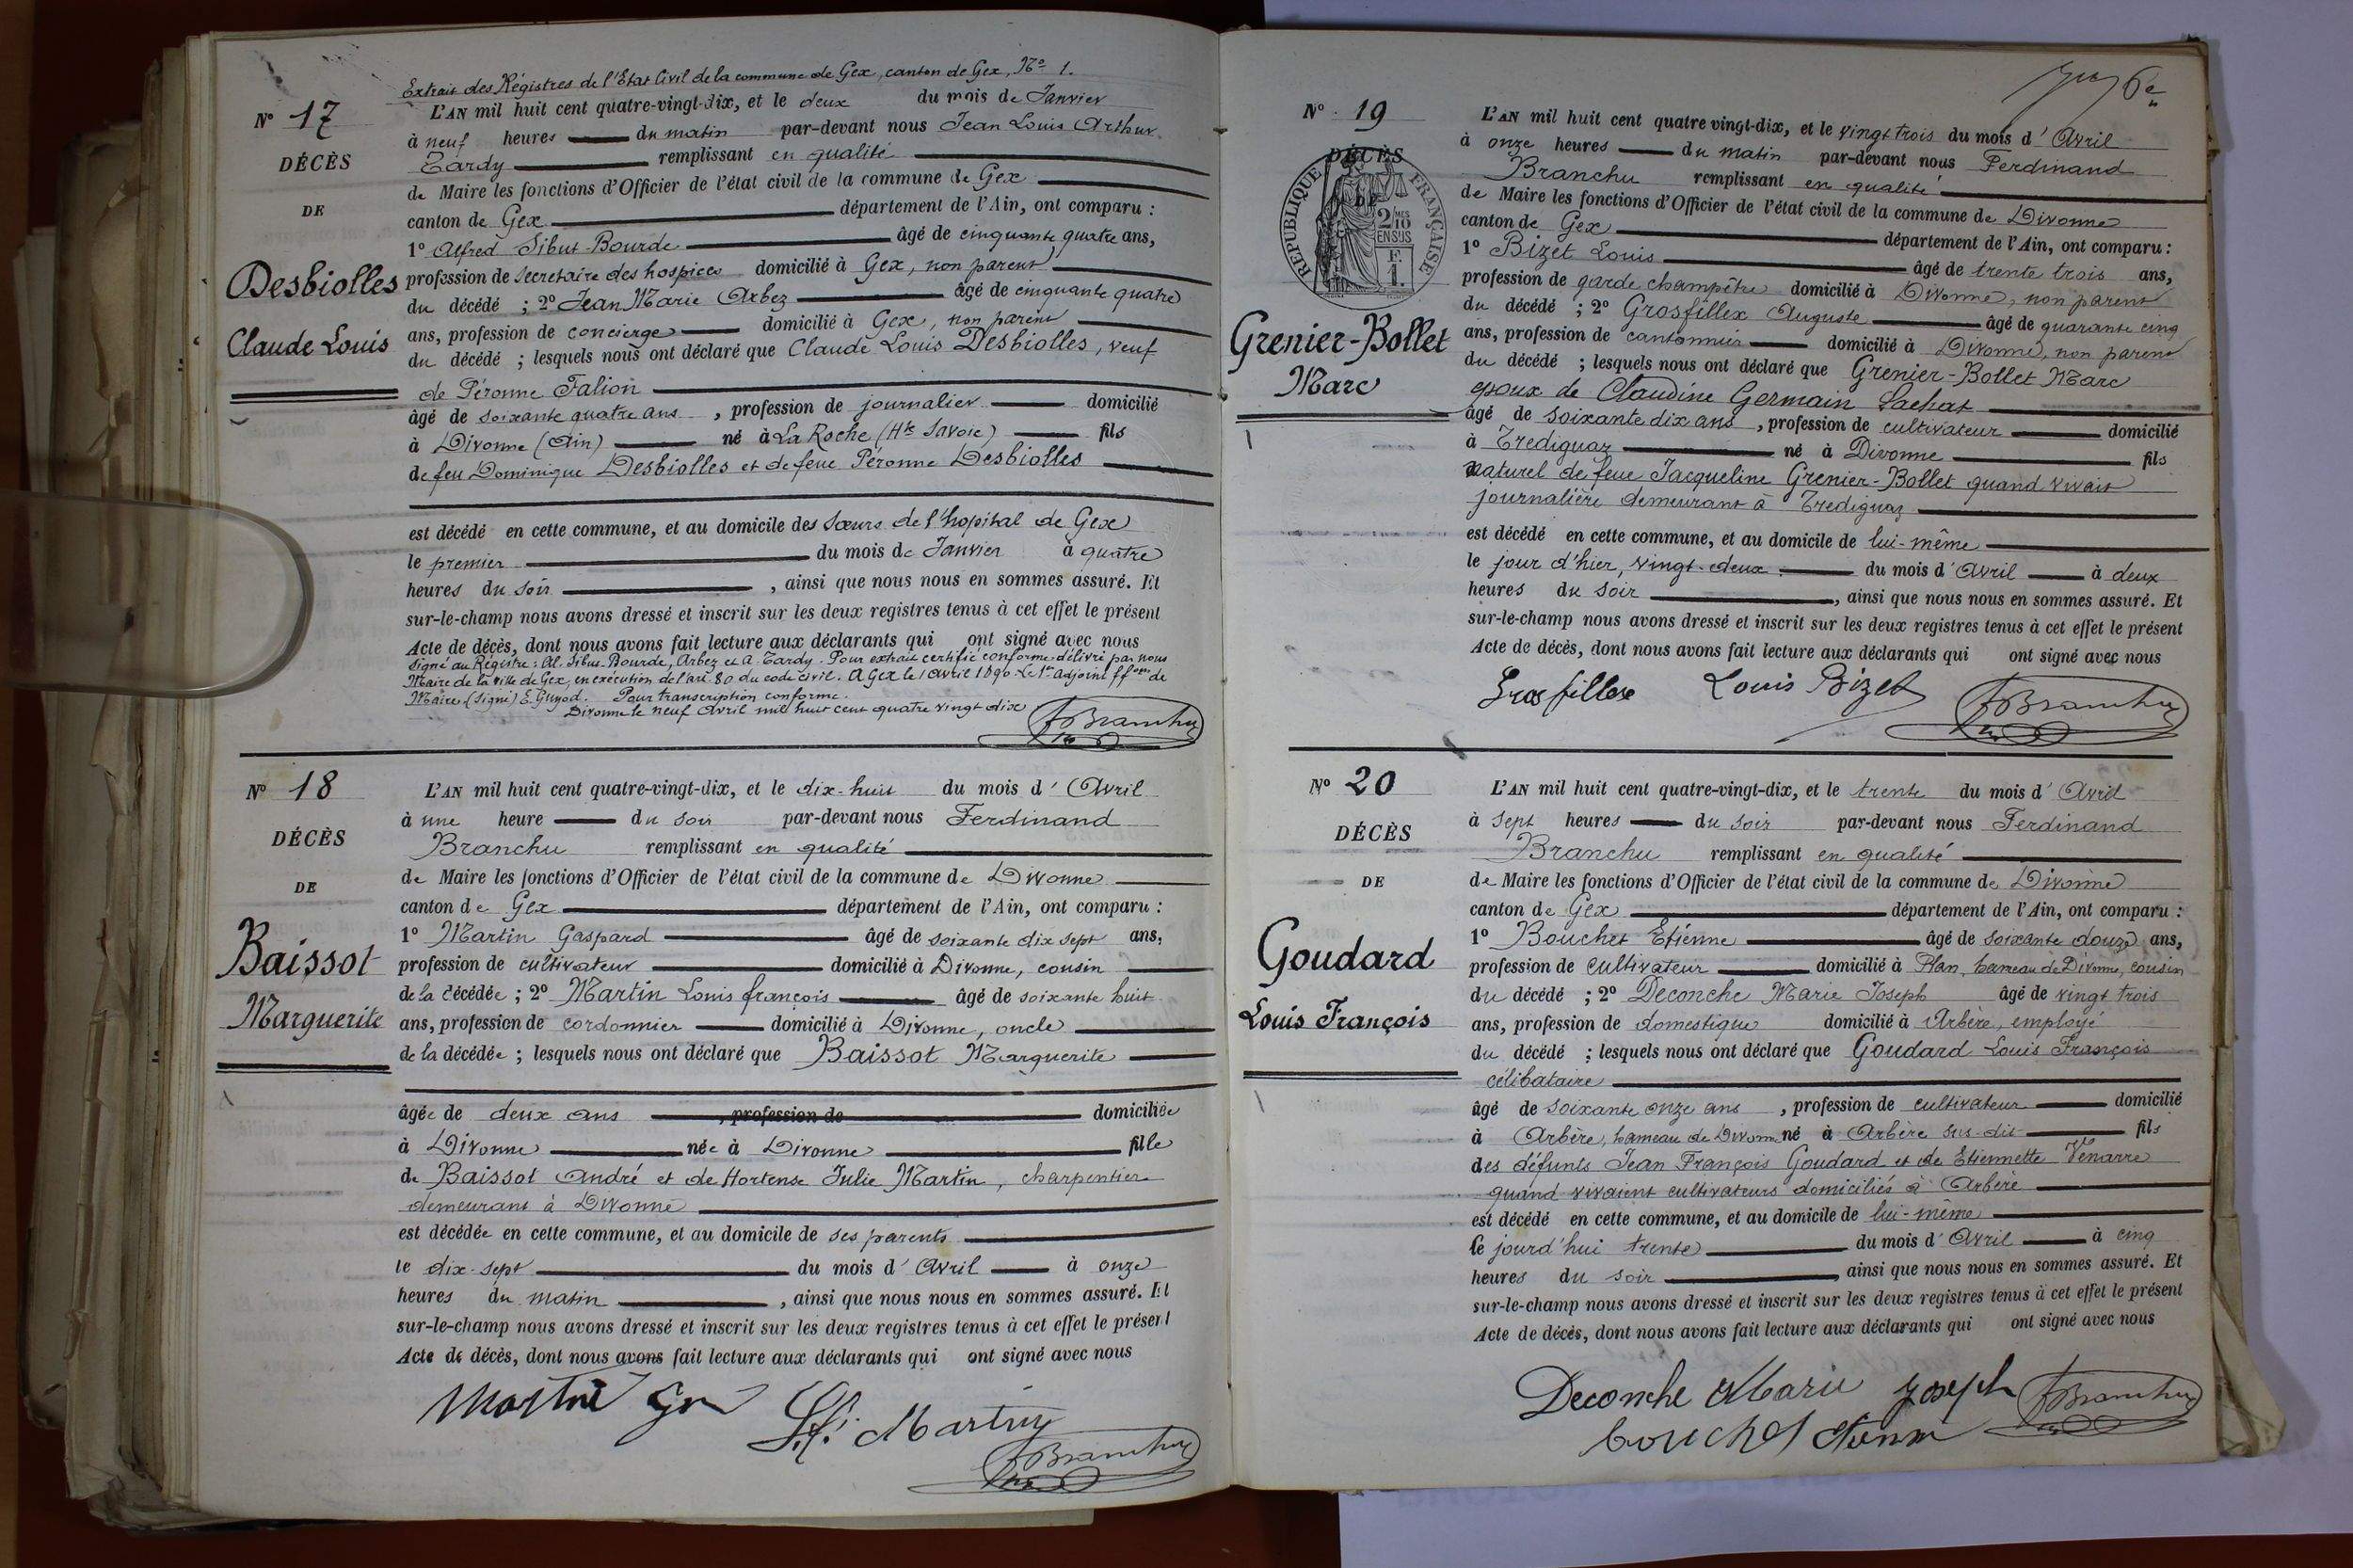 Extrait des Régistres de l'Etat Civil de la commune de Gex, canton de Gex, No 1.
No 17
DÉCÈS
DE
Desbiolles
Claude Louis
L'AN mil huit cent quatre-vingt-dix, et le deux du mois de Janvier
à neuf heures du matin par-devant nous Jean Louis Arthur
Tardy remplissant en qualité
de Maire les fonctions d'Officier de l'état civil de la commune de Gex
canton de Gex département de l'Ain, ont comparu :
1º Alfred Sibut-Bourde âgé de cinquante quatre ans,
profession de Secretaire des hospices domicilié à Gex, non parent
du décédé ; 2º Jean Marie Arbez âgé de cinquante quatre
ans, profession de concierge domicilié à Gex, non parent
du décédé ; lesquels nous ont déclaré que Claude Louis Desbiolles, veuf
de Péronne Falion
âgé de soixante quatre ans , profession de journalier domicilié
à Divonne (Ain) né à La Roche (Hte Savoie) fils
de feu Dominique Desbiolles et de feue Péronne Desbiolles
est décédé en cette commune, et au domicile des Sœurs de l'hopital de Gex
le premier du mois de Janvier à quatre
heures du soir , ainsi que nous nous en sommes assuré. Et
sur-le-champ nous avons dressé et inscrit sur les deux registres tenus à cet effet le présent
Acte de décès, dont nous avons fait lecture aux déclarants qui ont signé avec nous
Signé au Régistre : Al. Sibut-Bourde, Arbez et A. Tardy. Pour extrait certifié conforme délivré par nous
Maire de la ville de Gex, en exécution de l'art. 80 du code civil. A Gex le 1 avril 1890. Le 1er adjoint ffons de
Maire, (signé) E. Guyod. Pour transcription conforme.
Divonne le neuf Avril mil huit cent quatre vingt dix
FBranchu
No 18
DÉCÈS
DE
Baissot
Marguerite
L'AN mil huit cent quatre-vingt-dix, et le dix-huit du mois d' Avril
à une heure du soir par-devant nous Ferdinand
Branchu remplissant en qualité
de Maire les fonctions d'Officier de l'état civil de la commune de Divonne
canton de Gex département de l'Ain, ont comparu :
1º Martin Gaspard âgé de soixante dix sept ans,
profession de cultivateur domicilié à Divonne, cousin
de la décédée ; 2º Martin Louis françois âgé de soixante huit
ans, profession de cordonnier domicilié à Divonne, oncle
de la décédée ; lesquels nous ont déclaré que Baissot Marguerite
âgée de deux ans , profession de domiciliée
à Divonne née à Divonne fille
de Baissot André et de Hortense Julie Martin, charpentier
demeurant à Divonne
est décédée en cette commune, et au domicile de ses parents
le dix-sept du mois d' Avril à onze
heures du matin , ainsi que nous nous en sommes assuré. Et
sur-le-champ nous avons dressé et inscrit sur les deux registres tenus à cet effet le présent
Acte de décès, dont nous avons fait lecture aux déclarants qui ont signé avec nous
L.f. Martin
FBranchu
6e
No 19
DÉCÈS
DE
RÉPUBLIQUE FRANÇAISE
2 MES 10
EN SUS
F. 1.
Grenier-Bollet
Marc
L'AN mil huit cent quatre vingt-dix, et le vingt trois du mois d' Avril
à onze heures du matin par-devant nous Ferdinand
Branchu remplissant en qualité
de Maire les fonctions d'Officier de l'état civil de la commune de Divonne
canton de Gex département de l'Ain, ont comparu :
1º Bizet Louis âgé de trente trois ans,
profession de garde champêtre domicilié à Divonne, non parent
du décédé ; 2º Grosfillex Auguste âgé de quarante cinq
ans, profession de cantonnier domicilié à Divonne, non parent
du décédé ; lesquels nous ont déclaré que Grenier-Bollet Marc
époux de Claudine Germain Lachat
âgé de soixante dix ans , profession de cultivateur domicilié
à Trediguaz né à Divonne fils
naturel de feue Jacqueline Grenier-Bollet quand vivait
journalière demeurant à Trediguaz
est décédé en cette commune, et au domicile de lui-même
le jour d'hier, vingt-deux du mois d' Avril à deux
heures du soir , ainsi que nous nous en sommes assuré. Et
sur-le-champ nous avons dressé et inscrit sur les deux registres tenus à cet effet le présent
Acte de décès, dont nous avons fait lecture aux déclarants qui ont signé avec nous
Grosfillex Louis Bizet FBranchu
No 20
DÉCÈS
DE
Goudard
Louis François
L'AN mil huit cent quatre-vingt-dix, et le trente du mois d' Avril
à sept heures du soir par-devant nous Ferdinand
Branchu remplissant en qualité
de Maire les fonctions d'Officier de l'état civil de la commune de Divonne
canton de Gex département de l'Ain, ont comparu :
1º Bouchet Etienne âgé de soixante douze ans,
profession de cultivateur domicilié à Plan, hameau de Divonne, cousin
du décédé ; 2º Deconche Marie Joseph âgé de vingt trois
ans, profession de domestique domicilié à Arbère, employé
du décédé ; lesquels nous ont déclaré que Goudard Louis François
célibataire
âgé de soixante onze ans , profession de cultivateur domicilié
à Arbère, hameau de Divonne né à Arbère sus-dit fils
des défunts Jean François Goudard et de Etiennette Venarre
quand vivaient cultivateurs domiciliés à Arbère
est décédé en cette commune, et au domicile de lui-même
le jourd'hui trente du mois d' Avril à cinq
heures du soir , ainsi que nous nous en sommes assuré. Et
sur-le-champ nous avons dressé et inscrit sur les deux registres tenus à cet effet le présent
Acte de décès, dont nous avons fait lecture aux déclarants qui ont signé avec nous
Deconche Marie Joseph FBranchu
bouchet